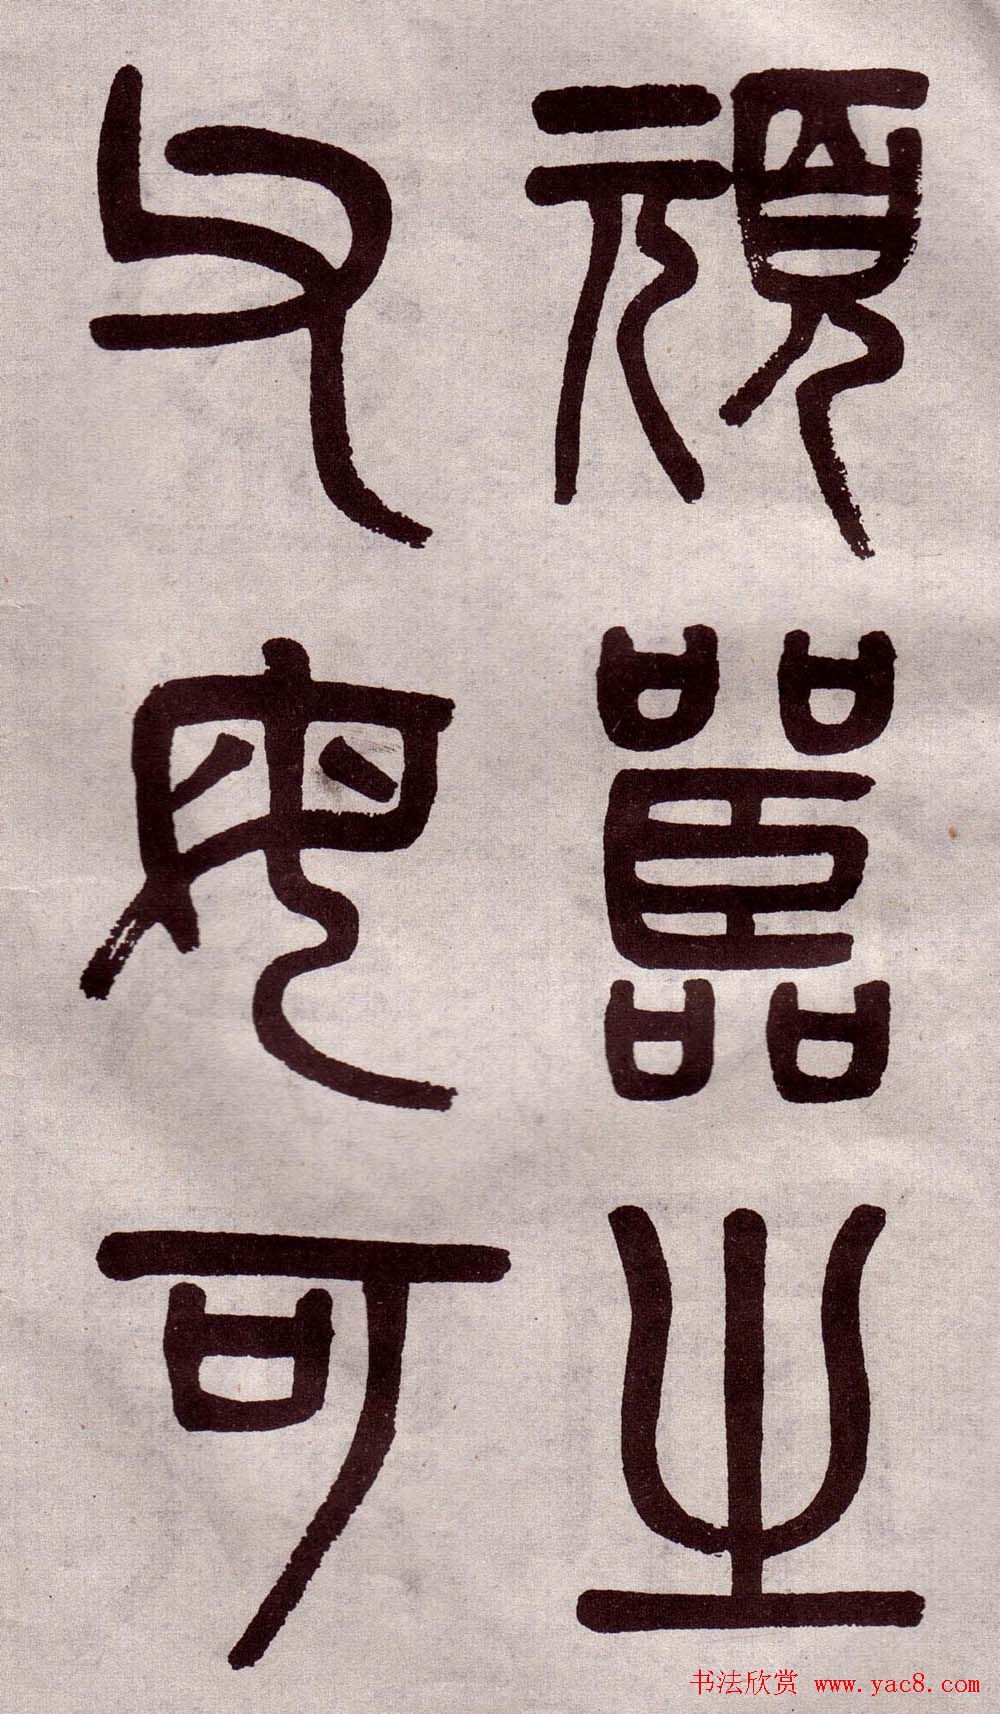 頑嚚之
父母可
书法欣赏 www.yac8.com